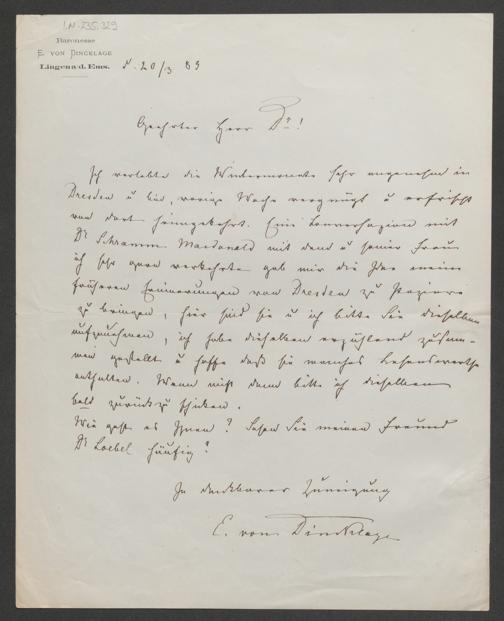 I.N. 235.329
Baronesse
E. VON DINCKLAGE
Lingen a/d. Ems.
d. 20/3 89
Geehrter Herr Dr!
Ich verlebte die Wintermonate sehr angenehm in
Dresden u bin, vorige Woche vergnügt u erfrischt
von dort heimgekehrt. Eine Conversazion mit
Dr Schramm Macdonald mit dem u seiner Frau
ich sehr gern verkehrte gab mir die Idee meine
früheren Erinnerungen von Dresden zu Papiere
zu bringen, hier sind sie u ich bitte Sie dieselben
aufzunehmen, ich habe dieselben erzählend zusam-
men gestellt u hoffe daß sie manches Lesenswerthe
enthalten. Wenn nicht dann bitte ich dieselben
bald zurück zu schicken.
Wie geht es Ihnen? Sehen Sie meinen Freund
Dr Loebel häufig?
In dankbarer Zuneigung
E. von Dincklage